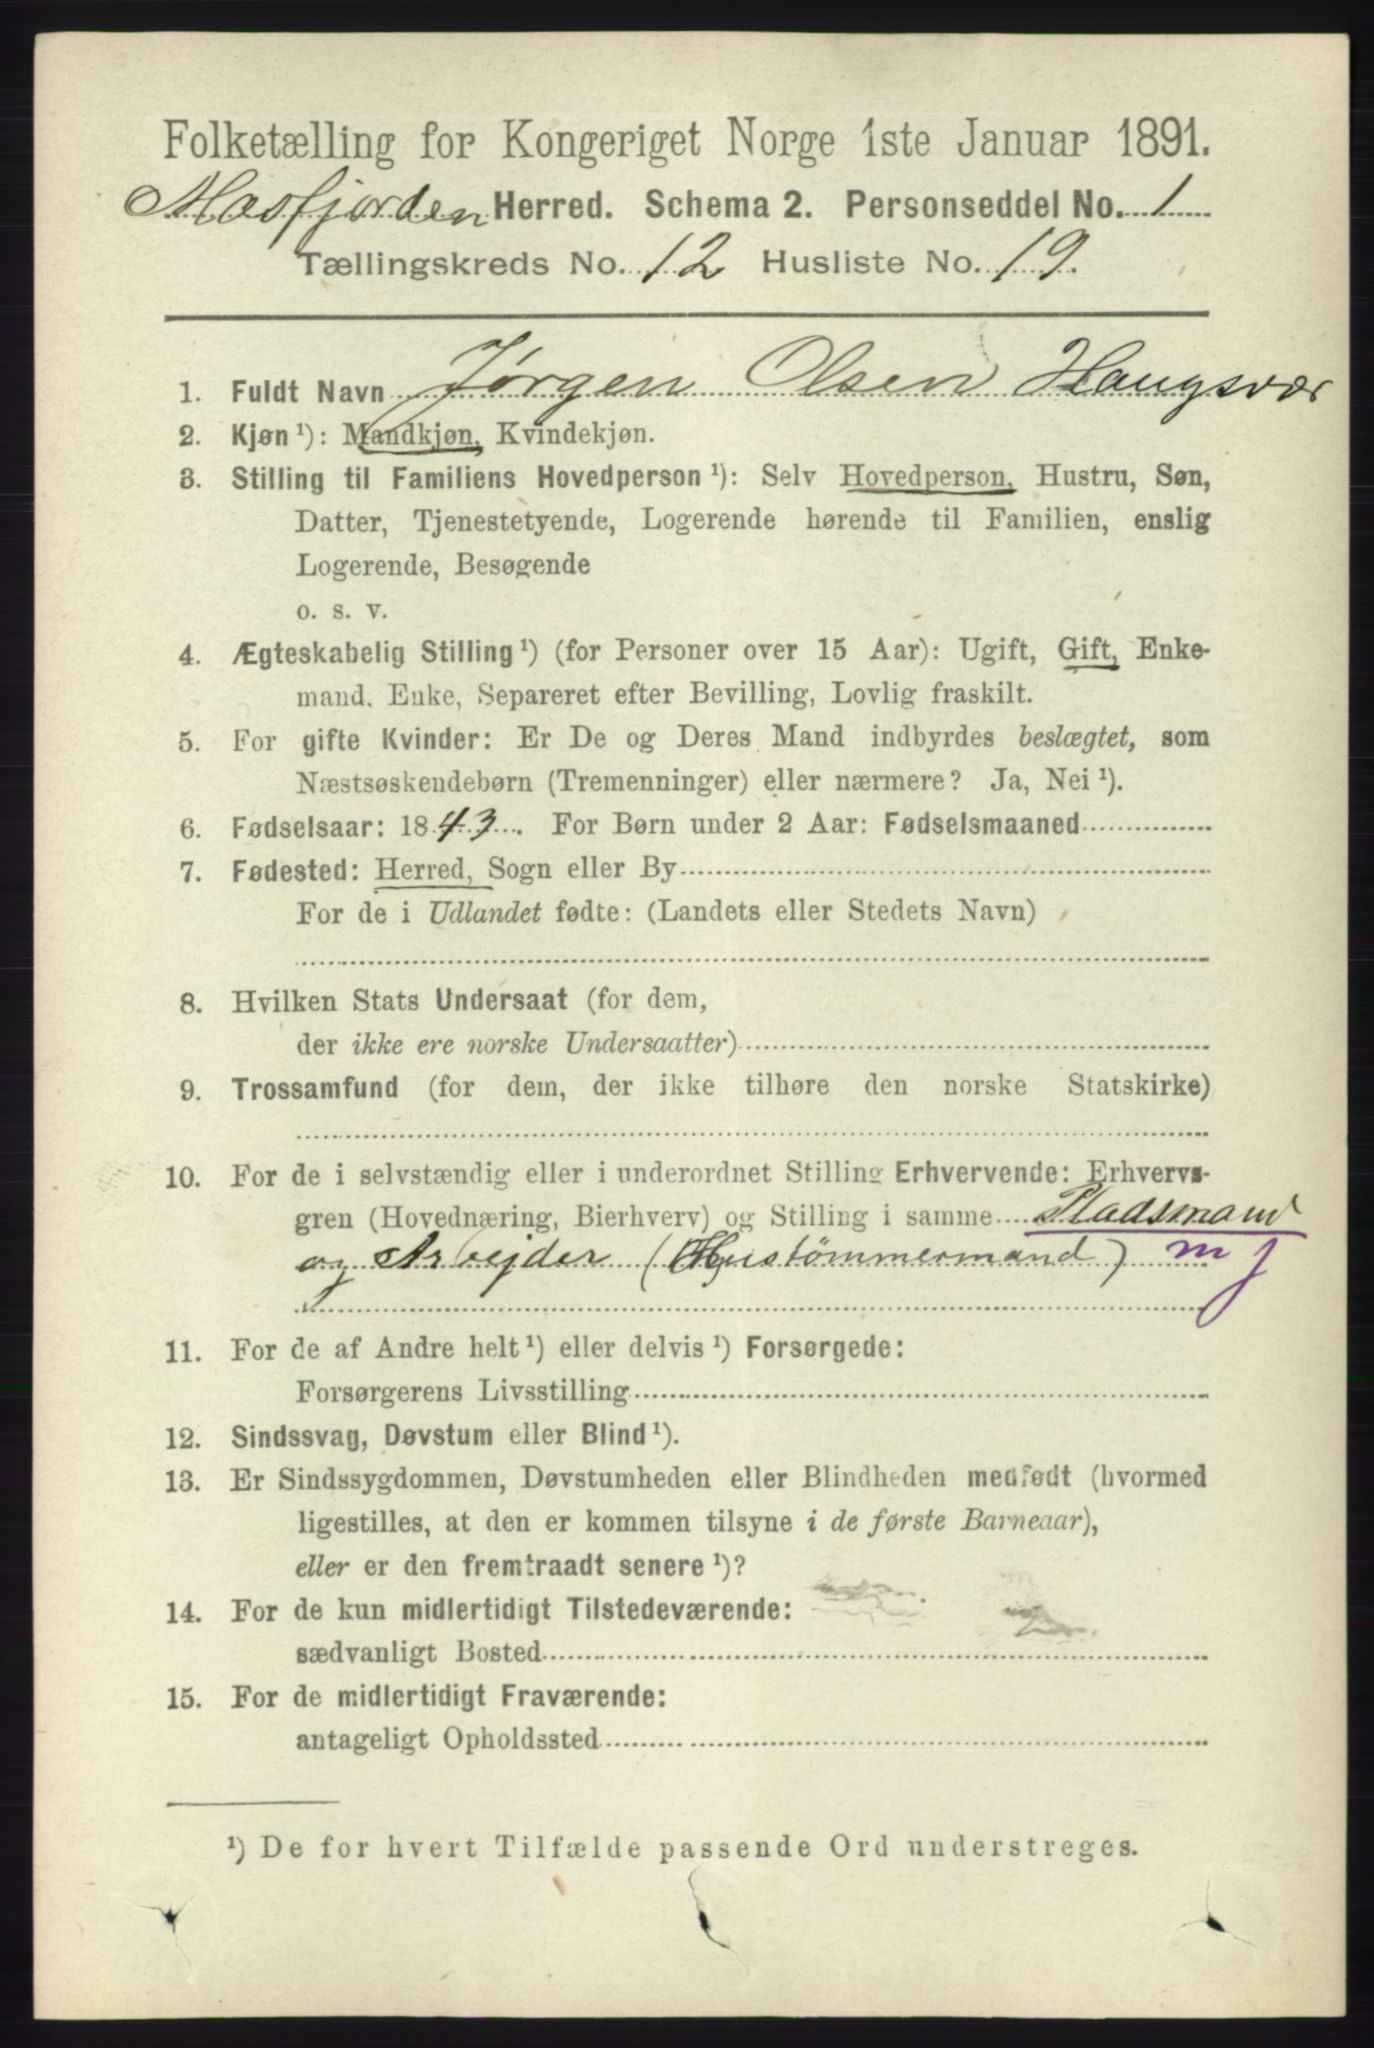 Folketælling for Kongeriget Norge 1ste Januar 1891.
Masfjorden Herred. Schema 2. Personseddel No. 1
Tællingskreds No. 12 Husliste No. 19.
1. Fuldt Navn Jørgen Olsen Haugsvær
2. Kjøn ¹): Mandkjøn, Kvindekjøn.
3. Stilling til Familiens Hovedperson ¹): Selv Hovedperson, Hustru, Søn,
Datter, Tjenestetyende, Logerende hørende til Familien, enslig
Logerende, Besøgende
o. s. v.
4. Ægteskabelig Stilling ¹) (for Personer over 15 Aar): Ugift, Gift, Enke-
mand, Enke, Separeret efter Bevilling, Lovlig fraskilt.
5. For gifte Kvinder: Er De og Deres Mand indbyrdes beslægtet, som
Næstsøskendebørn (Tremenninger) eller nærmere? Ja, Nei ¹).
6. Fødselsaar: 1843. For Børn under 2 Aar: Fødselsmaaned
7. Fødested: Herred, Sogn eller By
For de i Udlandet fødte: (Landets eller Stedets Navn)
8. Hvilken Stats Undersaat (for dem,
der ikke ere norske Undersaatter)
9. Trossamfund (for dem, der ikke tilhøre den norske Statskirke)
10. For de i selvstændig eller i underordnet Stilling Erhvervende: Erhvervs-
gren (Hovednæring, Bierhverv) og Stilling i samme Pladsmand
og Arbejder (Hustømmermand) m j
11. For de af Andre helt ¹) eller delvis ¹) Forsørgede:
Forsørgerens Livsstilling
12. Sindssvag, Døvstum eller Blind ¹).
13. Er Sindssygdommen, Døvstumheden eller Blindheden medfødt (hvormed
ligestilles, at den er kommen tilsyne i de første Barneaar),
eller er den fremtraadt senere ¹)?
14. For de kun midlertidigt Tilstedeværende:
sædvanligt Bosted
15. For de midlertidigt Fraværende:
antageligt Opholdssted
¹) De for hvert Tilfælde passende Ord understreges.